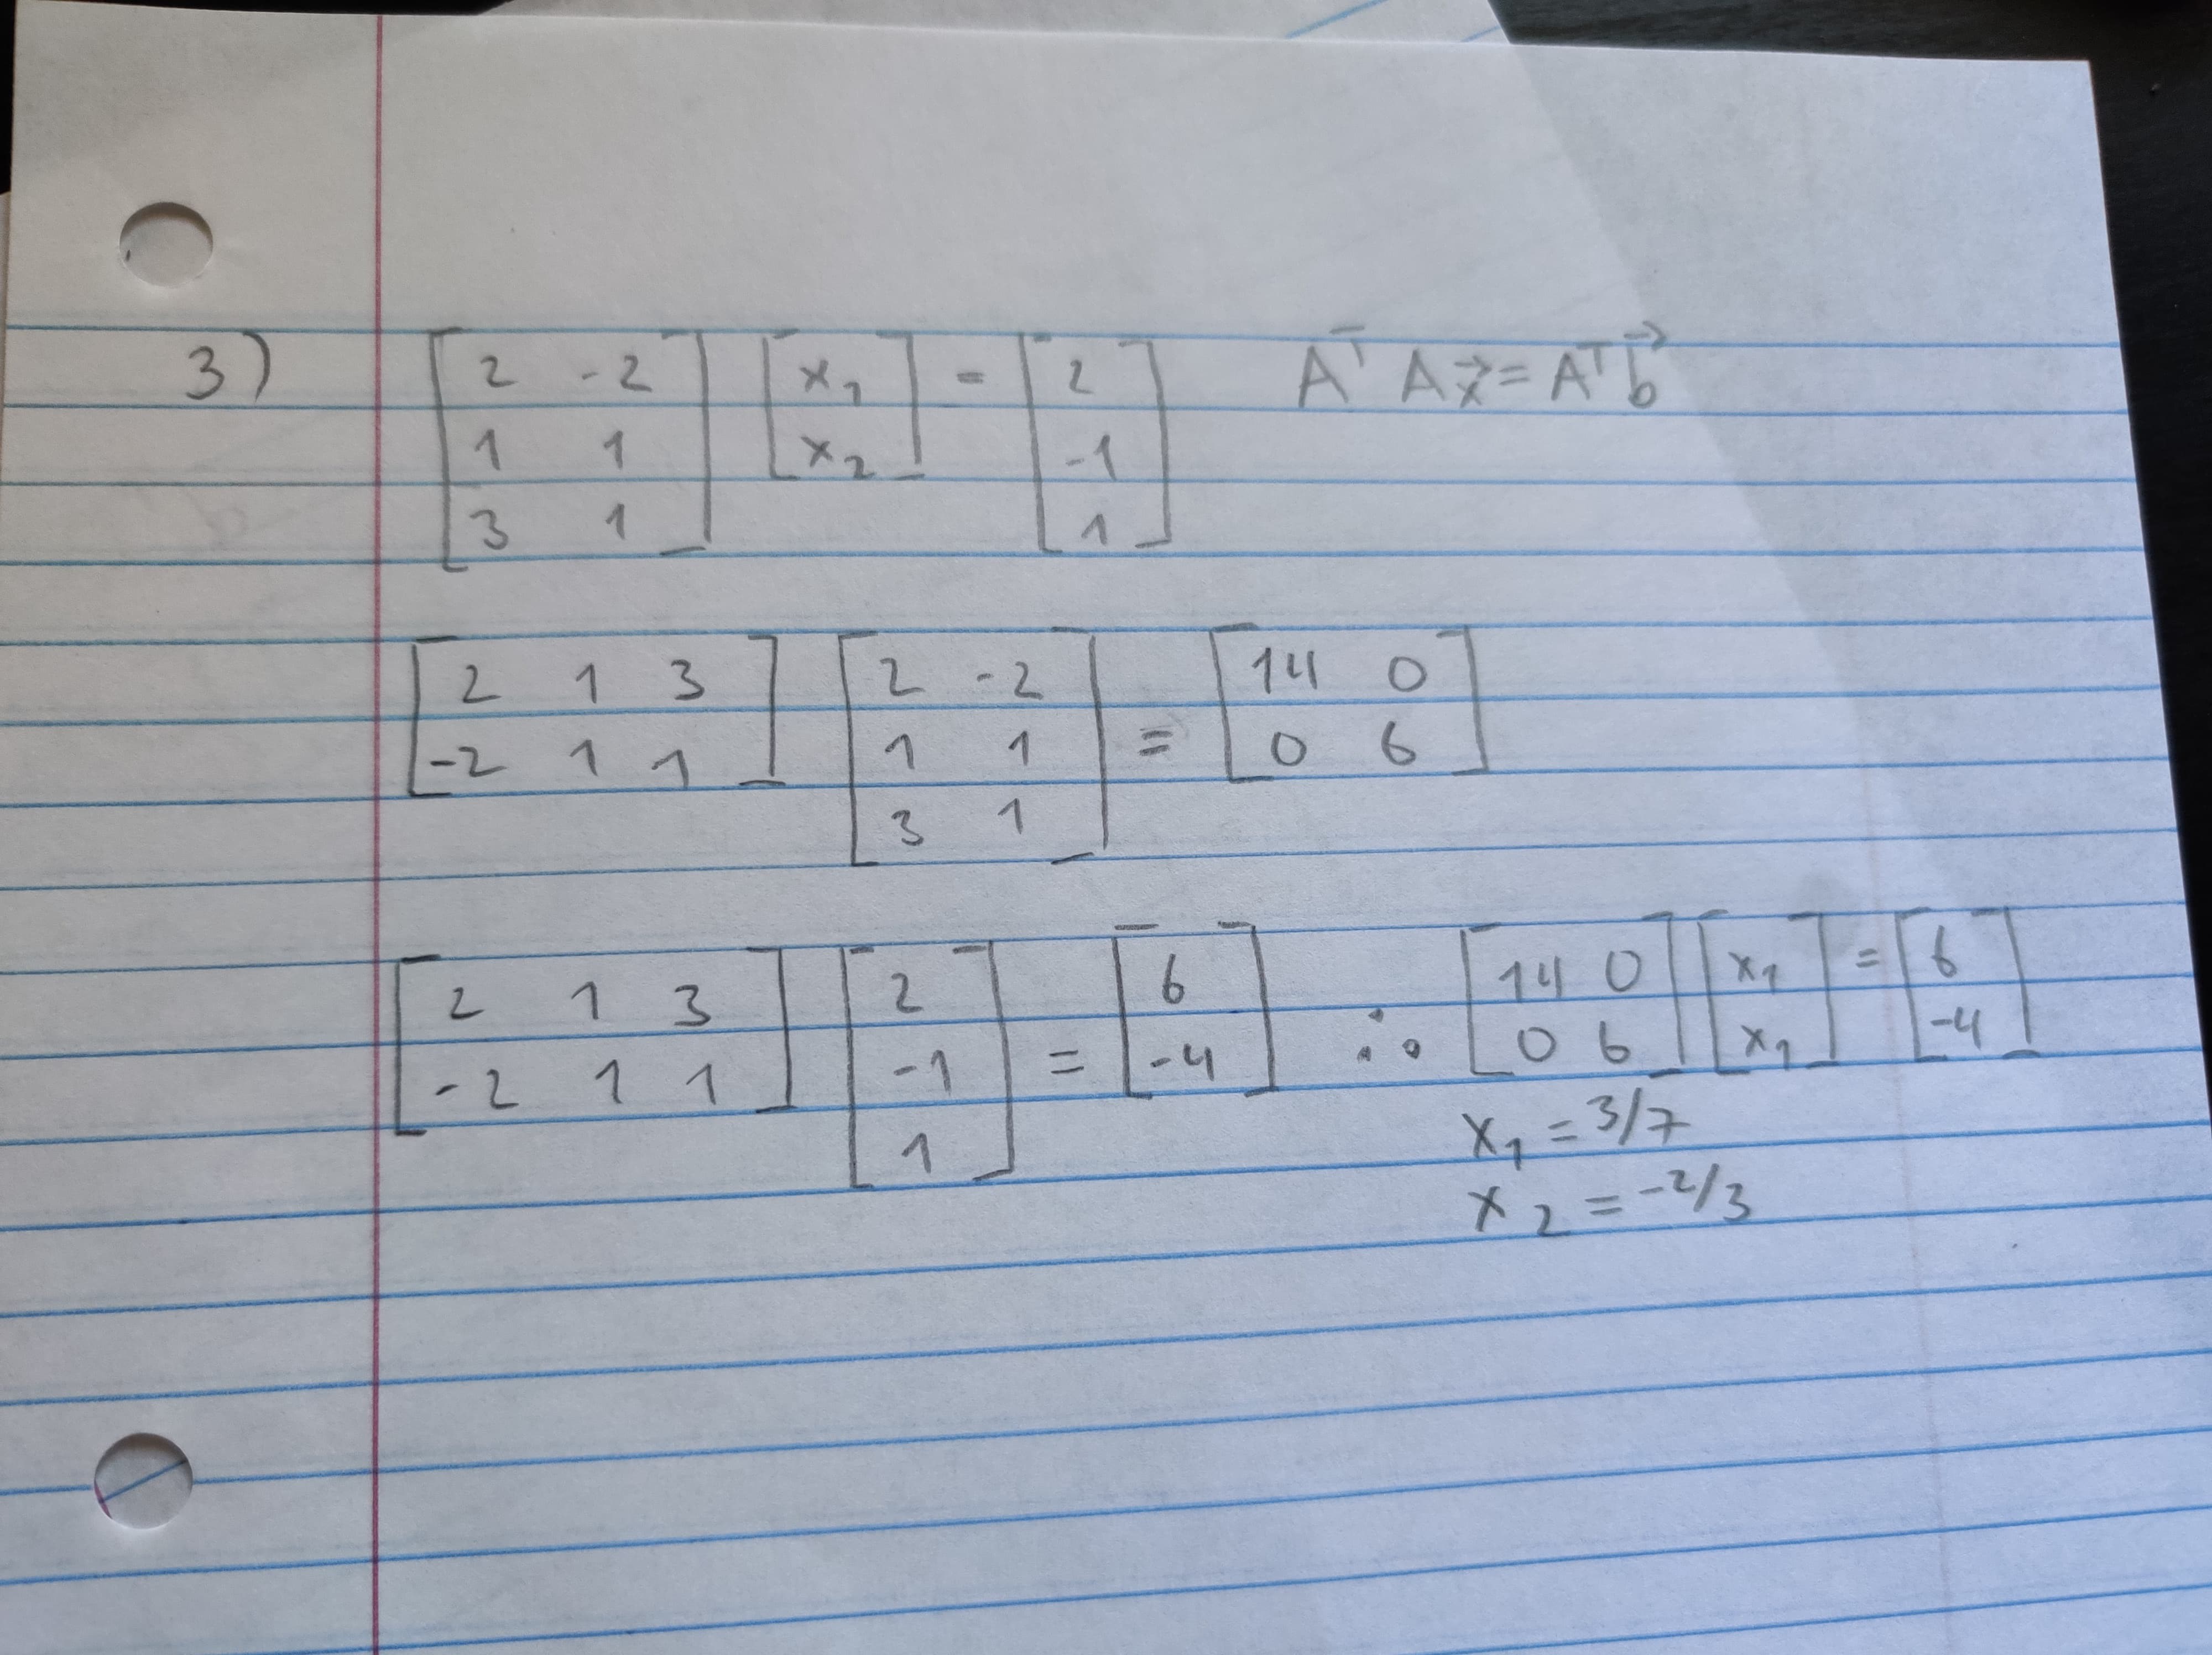 3) [2 -2; 1 1; 3 1] [x₁; x₂] = [2; -1; 1] Aᵀ A x⃗ = Aᵀ b⃗
[2 1 3; -2 1 1] [2 -2; 1 1; 3 1] = [14 0; 0 6]
[2 1 3; -2 1 1] [2; -1; 1] = [6; -4] ∴ [14 0; 0 6] [x₁; x₁] = [6; -4]
x₁ = 3/7
x₂ = -2/3